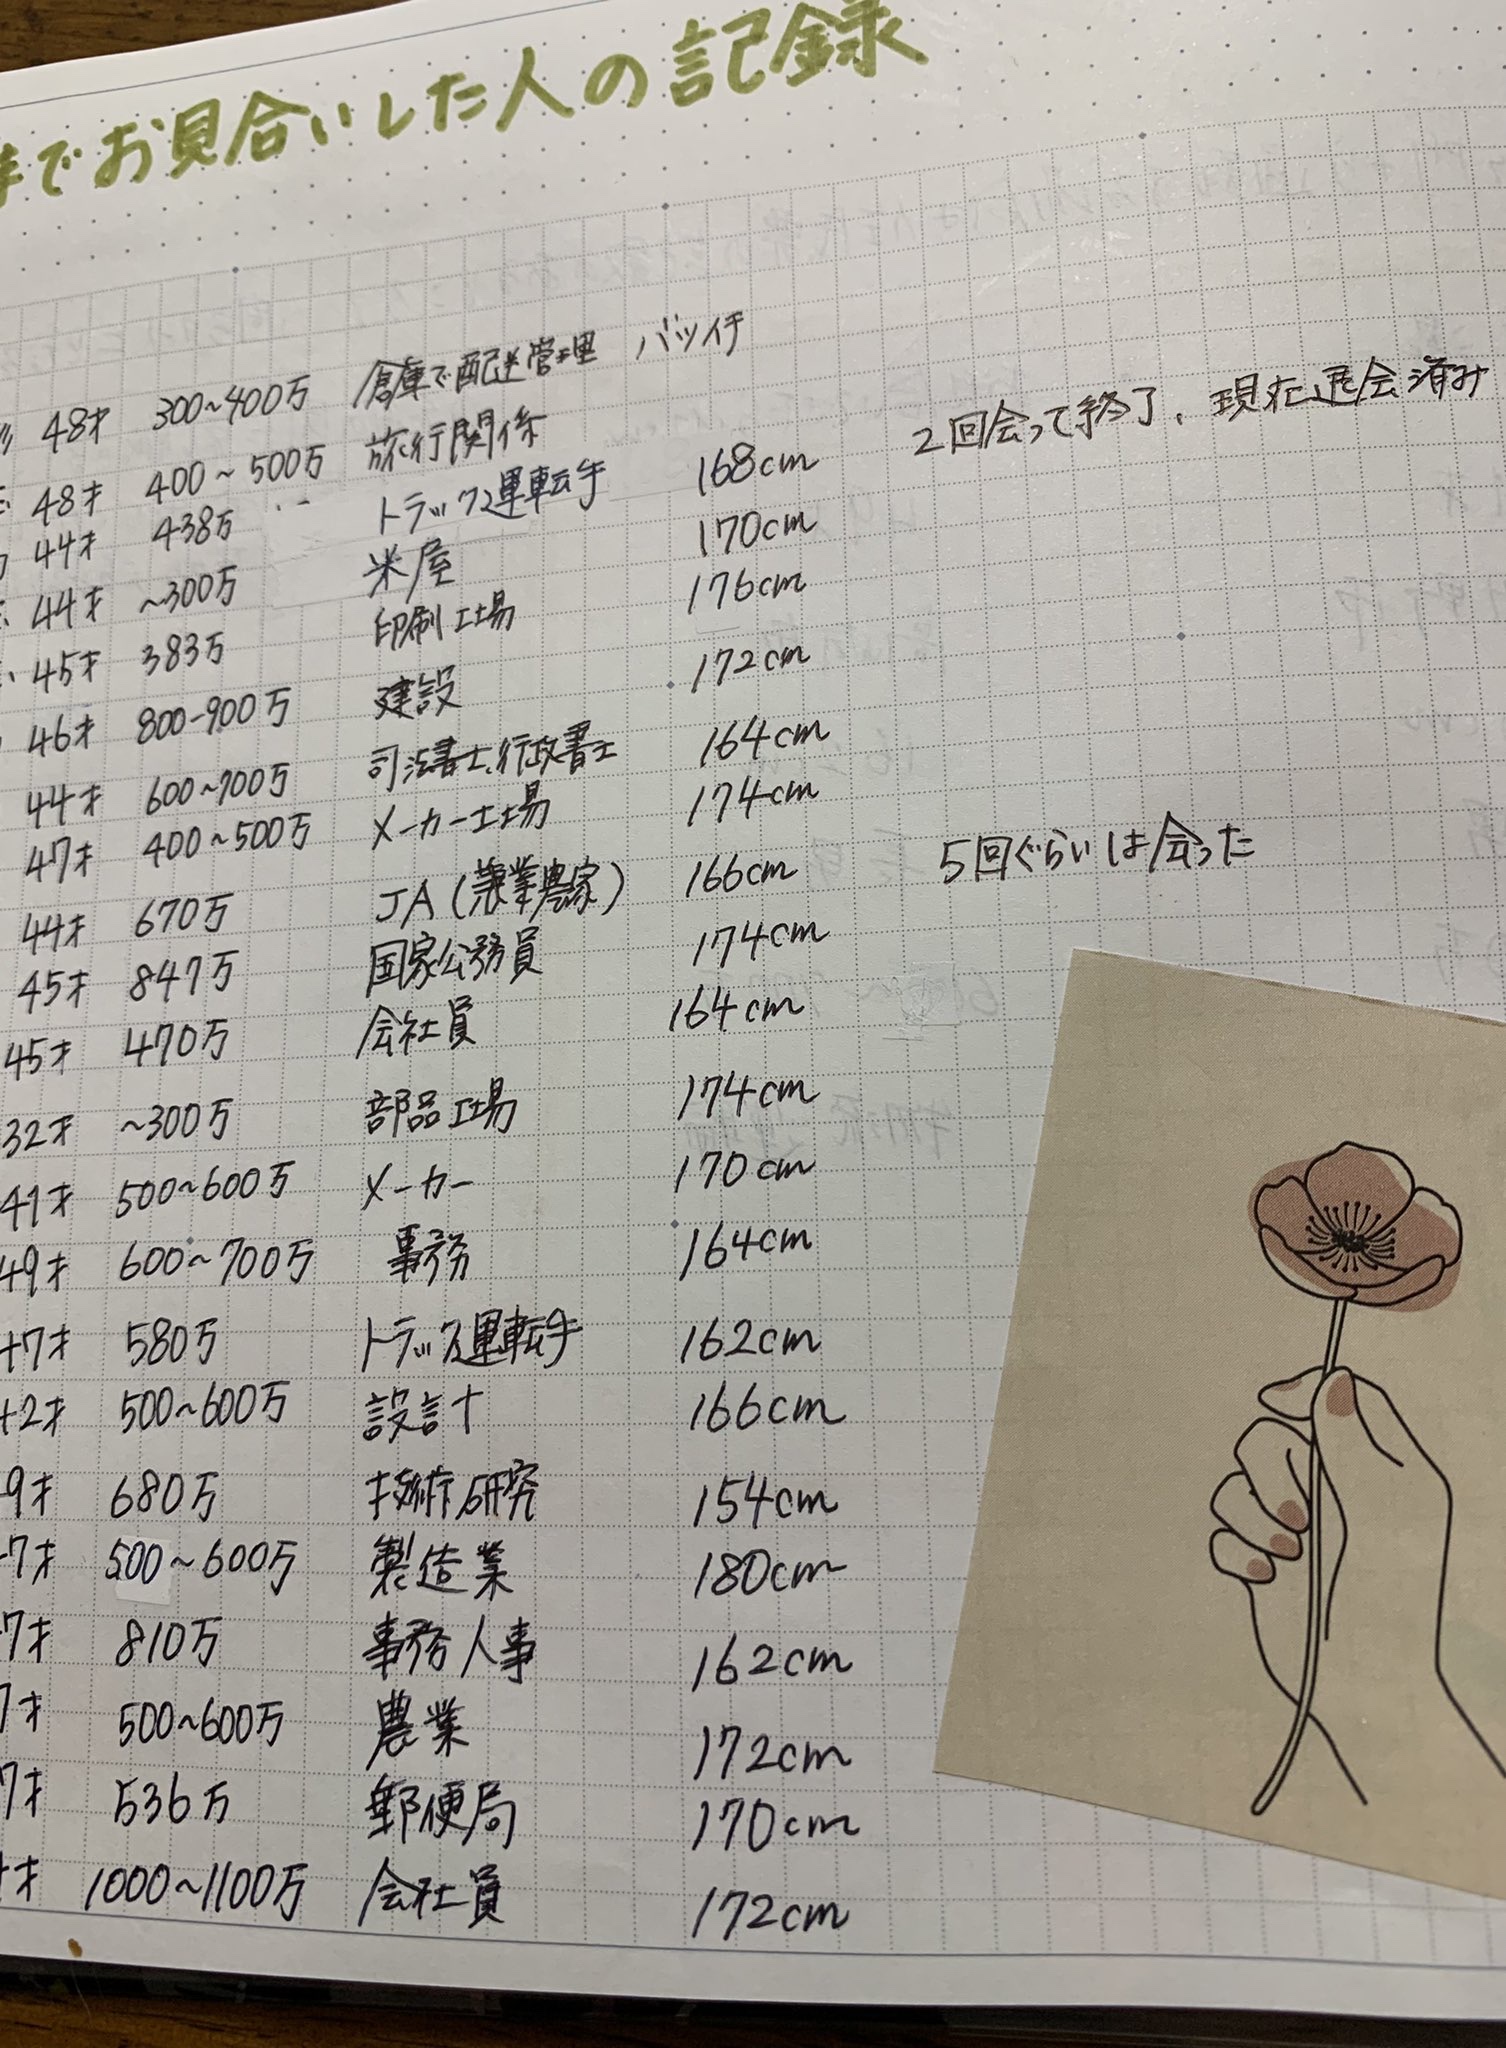 までお見合いした人の記録
48才 300~400万 倉庫で配送管理 バツイチ
48才 400~500万 旅行関係 168cm 2回会って終了、現在退会済み
44才 438万 トラック運転手 170cm
44才 ~300万 米屋 176cm
45才 383万 印刷工場 172cm
46才 800-900万 建設 164cm
44才 600~700万 司法書士、行政書士 174cm
47才 400~500万 メーカー工場 166cm 5回ぐらいは会った
44才 670万 JA(兼業農家) 174cm
45才 847万 国家公務員 164cm
45才 470万 会社員 174cm
32才 ~300万 部品工場 170cm
41才 500~600万 メーカー 164cm
49才 600~700万 事務 162cm
7才 580万 トラック運転手 166cm
2才 500~600万 設計 154cm
9才 680万 技術研究 180cm
7才 500~600万 製造業 162cm
7才 810万 事務人事 172cm
7才 500~600万 農業 170cm
7才 536万 郵便局 172cm
才 1000~1100万 会社員